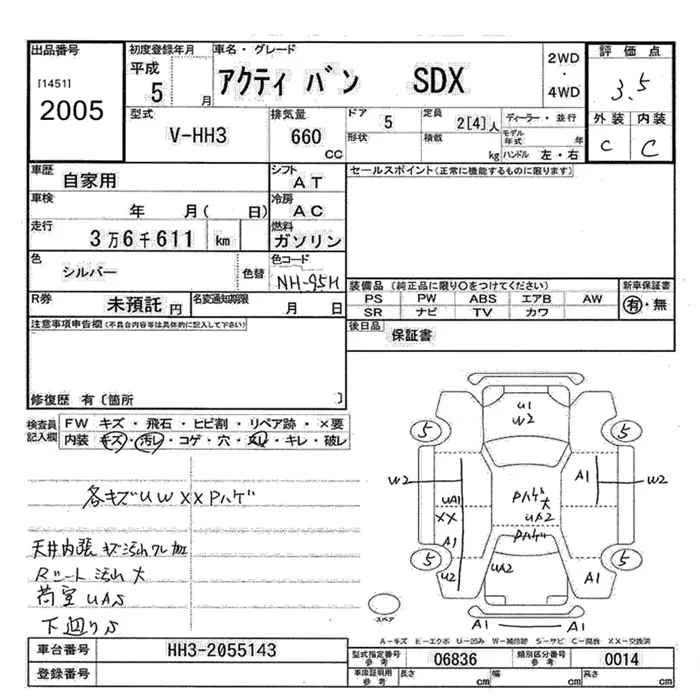 出品番号
[1451]
2005
初度登録年月
平成
5
月
車名・グレード
アクティ バン SDX
2WD
・
4WD
評価点
3.5
外装 内装
C C
型式
V-HH3
排気量
660
CC
ドア
5
形状
定員
2[4]人
積載
kg
ディーラー・並行
モデル年式
年
ハンドル 左・右
車歴
自家用
シフト
AT
車検
年 月( 日)
冷房
AC
走行
3万6千611 km
燃料
ガソリン
色
シルバー
色替
色コード
NH-95H
R券
未預託 円
名変通知期限
月 日
セールスポイント(正常に機能するものに限ります)
装備品 (純正品に限り○をつけてください)
PS PW ABS エアB AW
SR ナビ TV カワ
新車保証書
有・無
後日品
保証書
注意事項申告欄(不具合内容等は具体的に記入して下さい)
修復歴 有〔箇所 〕
検査員
記入欄
FW キズ・飛石・ヒビ割・リペア跡・×要
内装 キズ・汚レ・コゲ・穴・スレ・キレ・破レ
各キズUWXXPハゲ
天井内張キズ汚れワレ加
Rシート汚れ大
荷室UAS
下廻りS
U1
W2
5
5
W2
UA1
XX
A1
U2
Pハゲ
大
UA2
Pハゲ
UA2
A1
W2
5
5
A1
A1 A1
スペア
A-キズ E-エクボ U-凹み W-補修跡 S-サビ C-腐蝕 XX-交換済
車台番号
HH3-2055143
登録番号
型式指定番号
参考
06836
類別区分番号
参考
0014
車庫証明用
参考
長さ
cm
幅
cm
高さ
cm